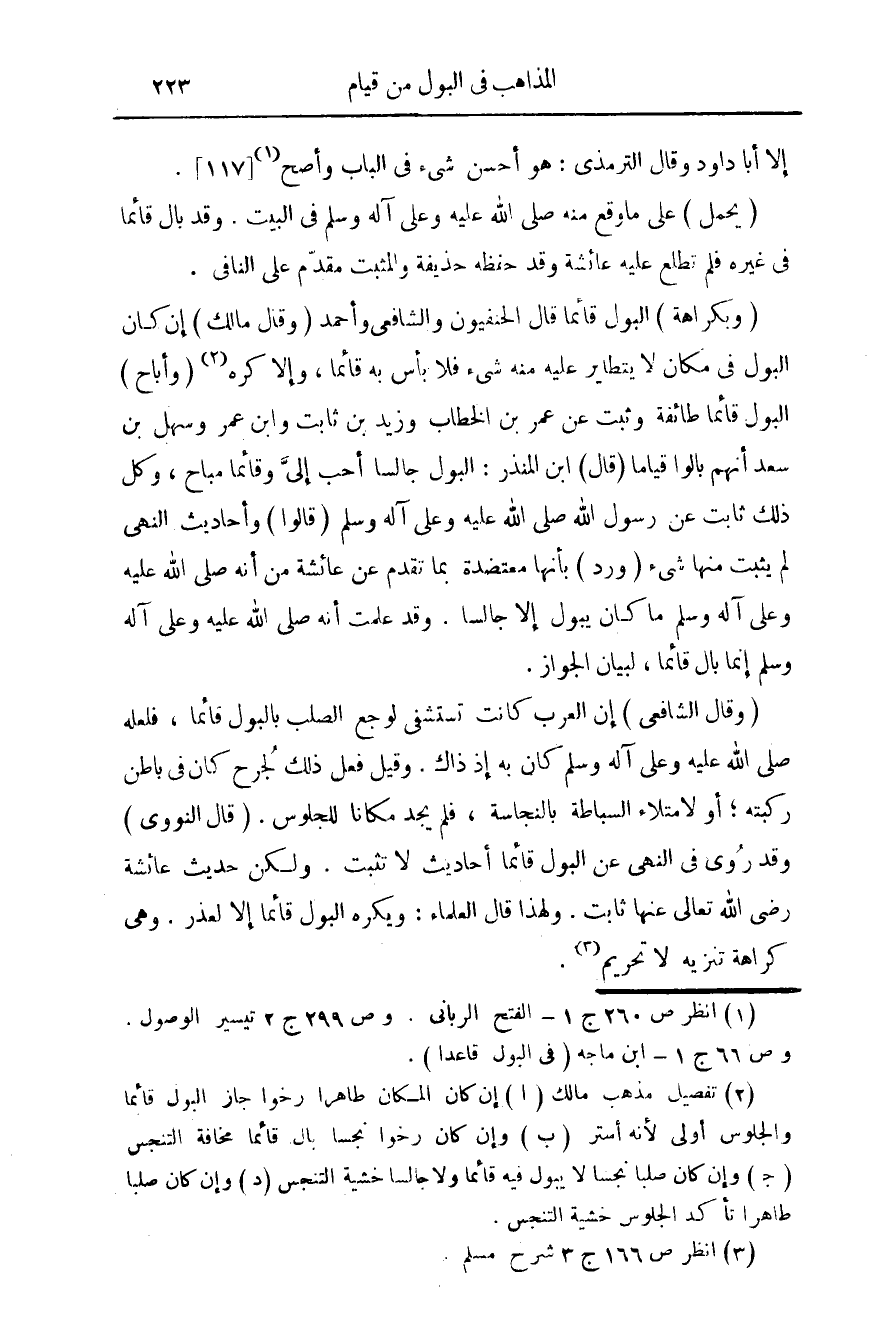 المذاهب فى البول من قيام ٢٢٣
إلا أبا داود وقال الترمذى : هو أحسن شىء فى الباب وأصح(١)[١١٧] .
( يحمل ) على ماوقع منه صلى الله عليه وعلى آله وسلم فى البيت . وقد بال قائما
فى غيره فلم تطلع عليه عائشة وقد حفظه حذيفة والمثبت مقدّم على النافى .
( وبكراهة ) البول قائما قال الحنفيون والشافعى وأحمد ( وقال مالك ) إن كان
البول فى مكان لا يتطاير عليه منه شىء فلا بأس به قائما ، وإلا كره(٢) ( وأباح )
البول قائما طائفة وثبت عن عمر بن الخطاب وزيد بن ثابت وابن عمر وسهل بن
سعد أنهم بالوا قياما (قال) ابن المنذر : البول جالسا أحب إلىَّ وقائما مباح ، وكل
ذلك ثابت عن رسول الله صلى الله عليه وعلى آله وسلم ( قالوا ) وأحاديث النهى
لم يثبت منها شىء ( ورد ) بأنها معتضدة بما تقدم عن عائشة من أنه صلى الله عليه
وعلى آله وسلم ما كان يبول إلا جالسا . وقد علمت أنه صلى الله عليه وعلى آله
وسلم إنما بال قائما ، لبيان الجواز .
( وقال الشافعى ) إن العرب كانت تستشفى لوجع الصلب بالبول قائما ، فلعله
صلى الله عليه وعلى آله وسلم كان به إذ ذاك . وقيل فعل ذلك لُجرح كان فى باطن
ركبته ؛ أو لامتلاء السباطة بالنجاسة ، فلم يجد مكانا للجلوس . ( قال النووى )
وقد رُوى فى النهى عن البول قائما أحاديث لا تثبت . ولكن حديث عائشة
رضى الله تعالى عنها ثابت . ولهذا قال العلماء : ويكره البول قائما إلا لعذر . وهى
كراهة تنزيه لا تحريم(٣) .
(١) انظر ص ٢٦٠ ج ١ – الفتح الربانى . و ص ٢٩٩ ج ٢ تيسير الوصول .
و ص ٦٦ ج ١ – ابن ماجه ( فى البول قاعدا ) .
(٢) تفصيل مذهب مالك ( ا ) إن كان المكان طاهرا رخوا جاز البول قائما
والجلوس أولى لأنه أستر ( ب ) وإن كان رخوا نجسا بال قائما مخافة التنجس
( ج ) وإن كان صلبا نجسا لا يبول فيه قائما ولا جالسا خشية التنجس (د) وإن كان صلبا
طاهرا تأكد الجلوس خشية التنجس .
(٣) انظر ص ١٦٦ ج ٣ شرح مسلم .